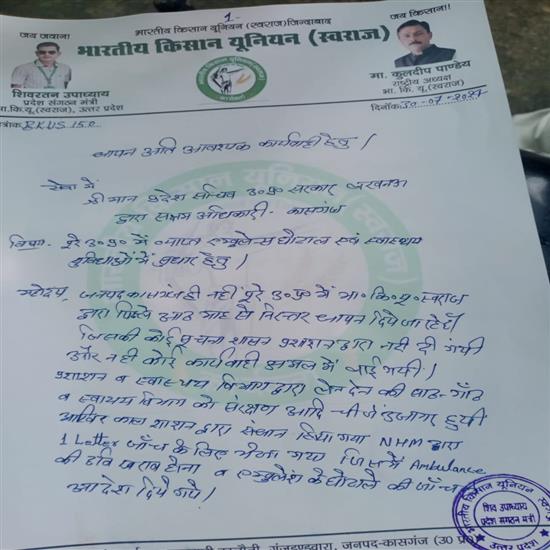 1-
भारतीय किसान यूनियन (स्वराज) जिन्दाबाद
जय जवान!
जय किसान!!
भारतीय किसान यूनियन (स्वराज)
शिवरतन उपाध्याय
प्रदेश संगठन मंत्री
भा.कि.यू.(स्वराज), उत्तर प्रदेश
मा. कुलदीप पाण्डेय
राष्ट्रीय अध्यक्ष
भा. कि. यू. (स्वराज)
पत्रांक BKUS 150
दिनाँक 30-07-2021
ज्ञापन अति आवश्यक कार्यवाही हेतु।
सेवा में
श्री मान प्रदेश सचिव उ०प्र० सरकार लखनऊ
द्वारा सक्षम अधिकारी- कासगंज
विषय- पूरे उ०प्र० में व्याप्त एम्बुलेन्स घोटाले एवं स्वास्थ्य
सुविधाओं में सुधार हेतु।
महोदय, जनपद कासगंज ही नहीं पूरे उ०प्र० में भा० कि० यू० स्वराज
द्वारा पिछले आठ माह से निरन्तर ज्ञापन दिये जा रहे हैं
जिसकी कोई सूचना शासन प्रशासन द्वारा नहीं दी गयी
और न ही कोई कार्यवाही अमल में लाई गयी।
प्रशासन व स्वास्थ्य विभाग द्वारा लेन देन की साठ-गाँठ
व स्वास्थ्य विभाग को संरक्षण आदि चीजें उजागर हुयीं
आखिर कार शासन द्वारा संज्ञान लिया गया NHM द्वारा
1 Letter जाँच के लिए भेजा गया जिसमें Ambulance
की छवि खराब होना व एम्बुलेंस के घोटाले की जाँच
आदेश दिये गये।
भारतीय किसान यूनियन स्वराज
शिव उपाध्याय
प्रदेश संगठन मंत्री
उत्तर प्रदेश
गंजडुण्डवारा, जनपद-कासगंज (उ0 प्र0)